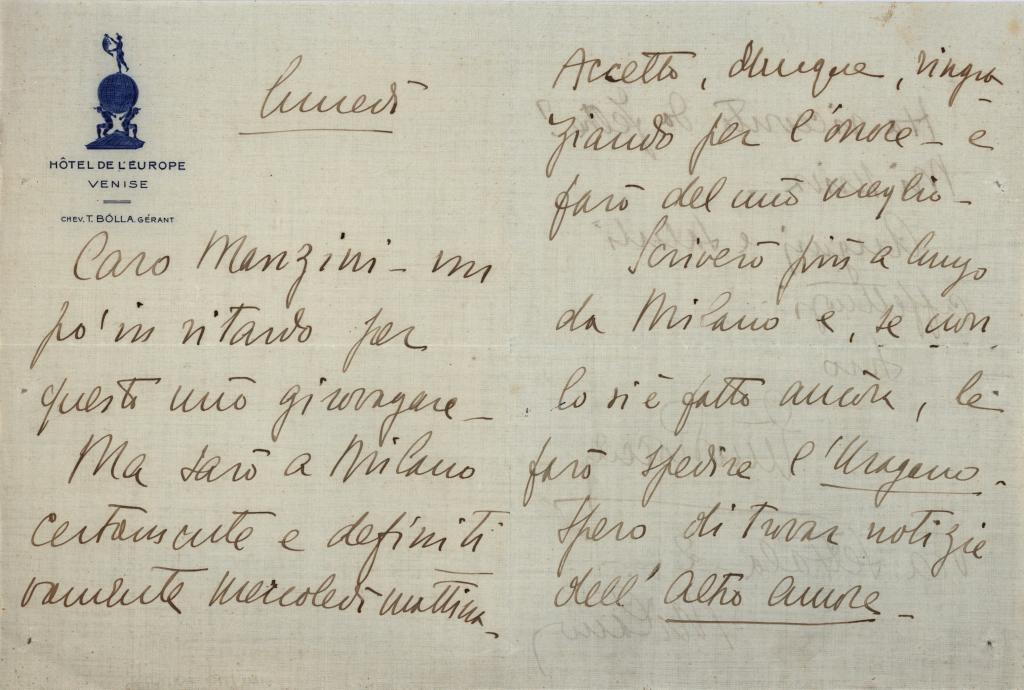 HÔTEL DE L'EUROPE
VENISE
CHEV. T. BÖLLA. GÉRANT
lunedì
Caro Manzini - un
po' in ritardo per
questo mio girovagare -
Ma sarò a Milano
certamente e definiti
vamente mercoledì mattina -
Accetto, dunque, ringra
ziando per l'onore - e
farò del mio meglio -
Scriverò più a lungo
da Milano e, se non
lo si è fatto ancora, le
farò spedire l'Uragano -
Spero di trovar notizie
dell'Altro Amore -